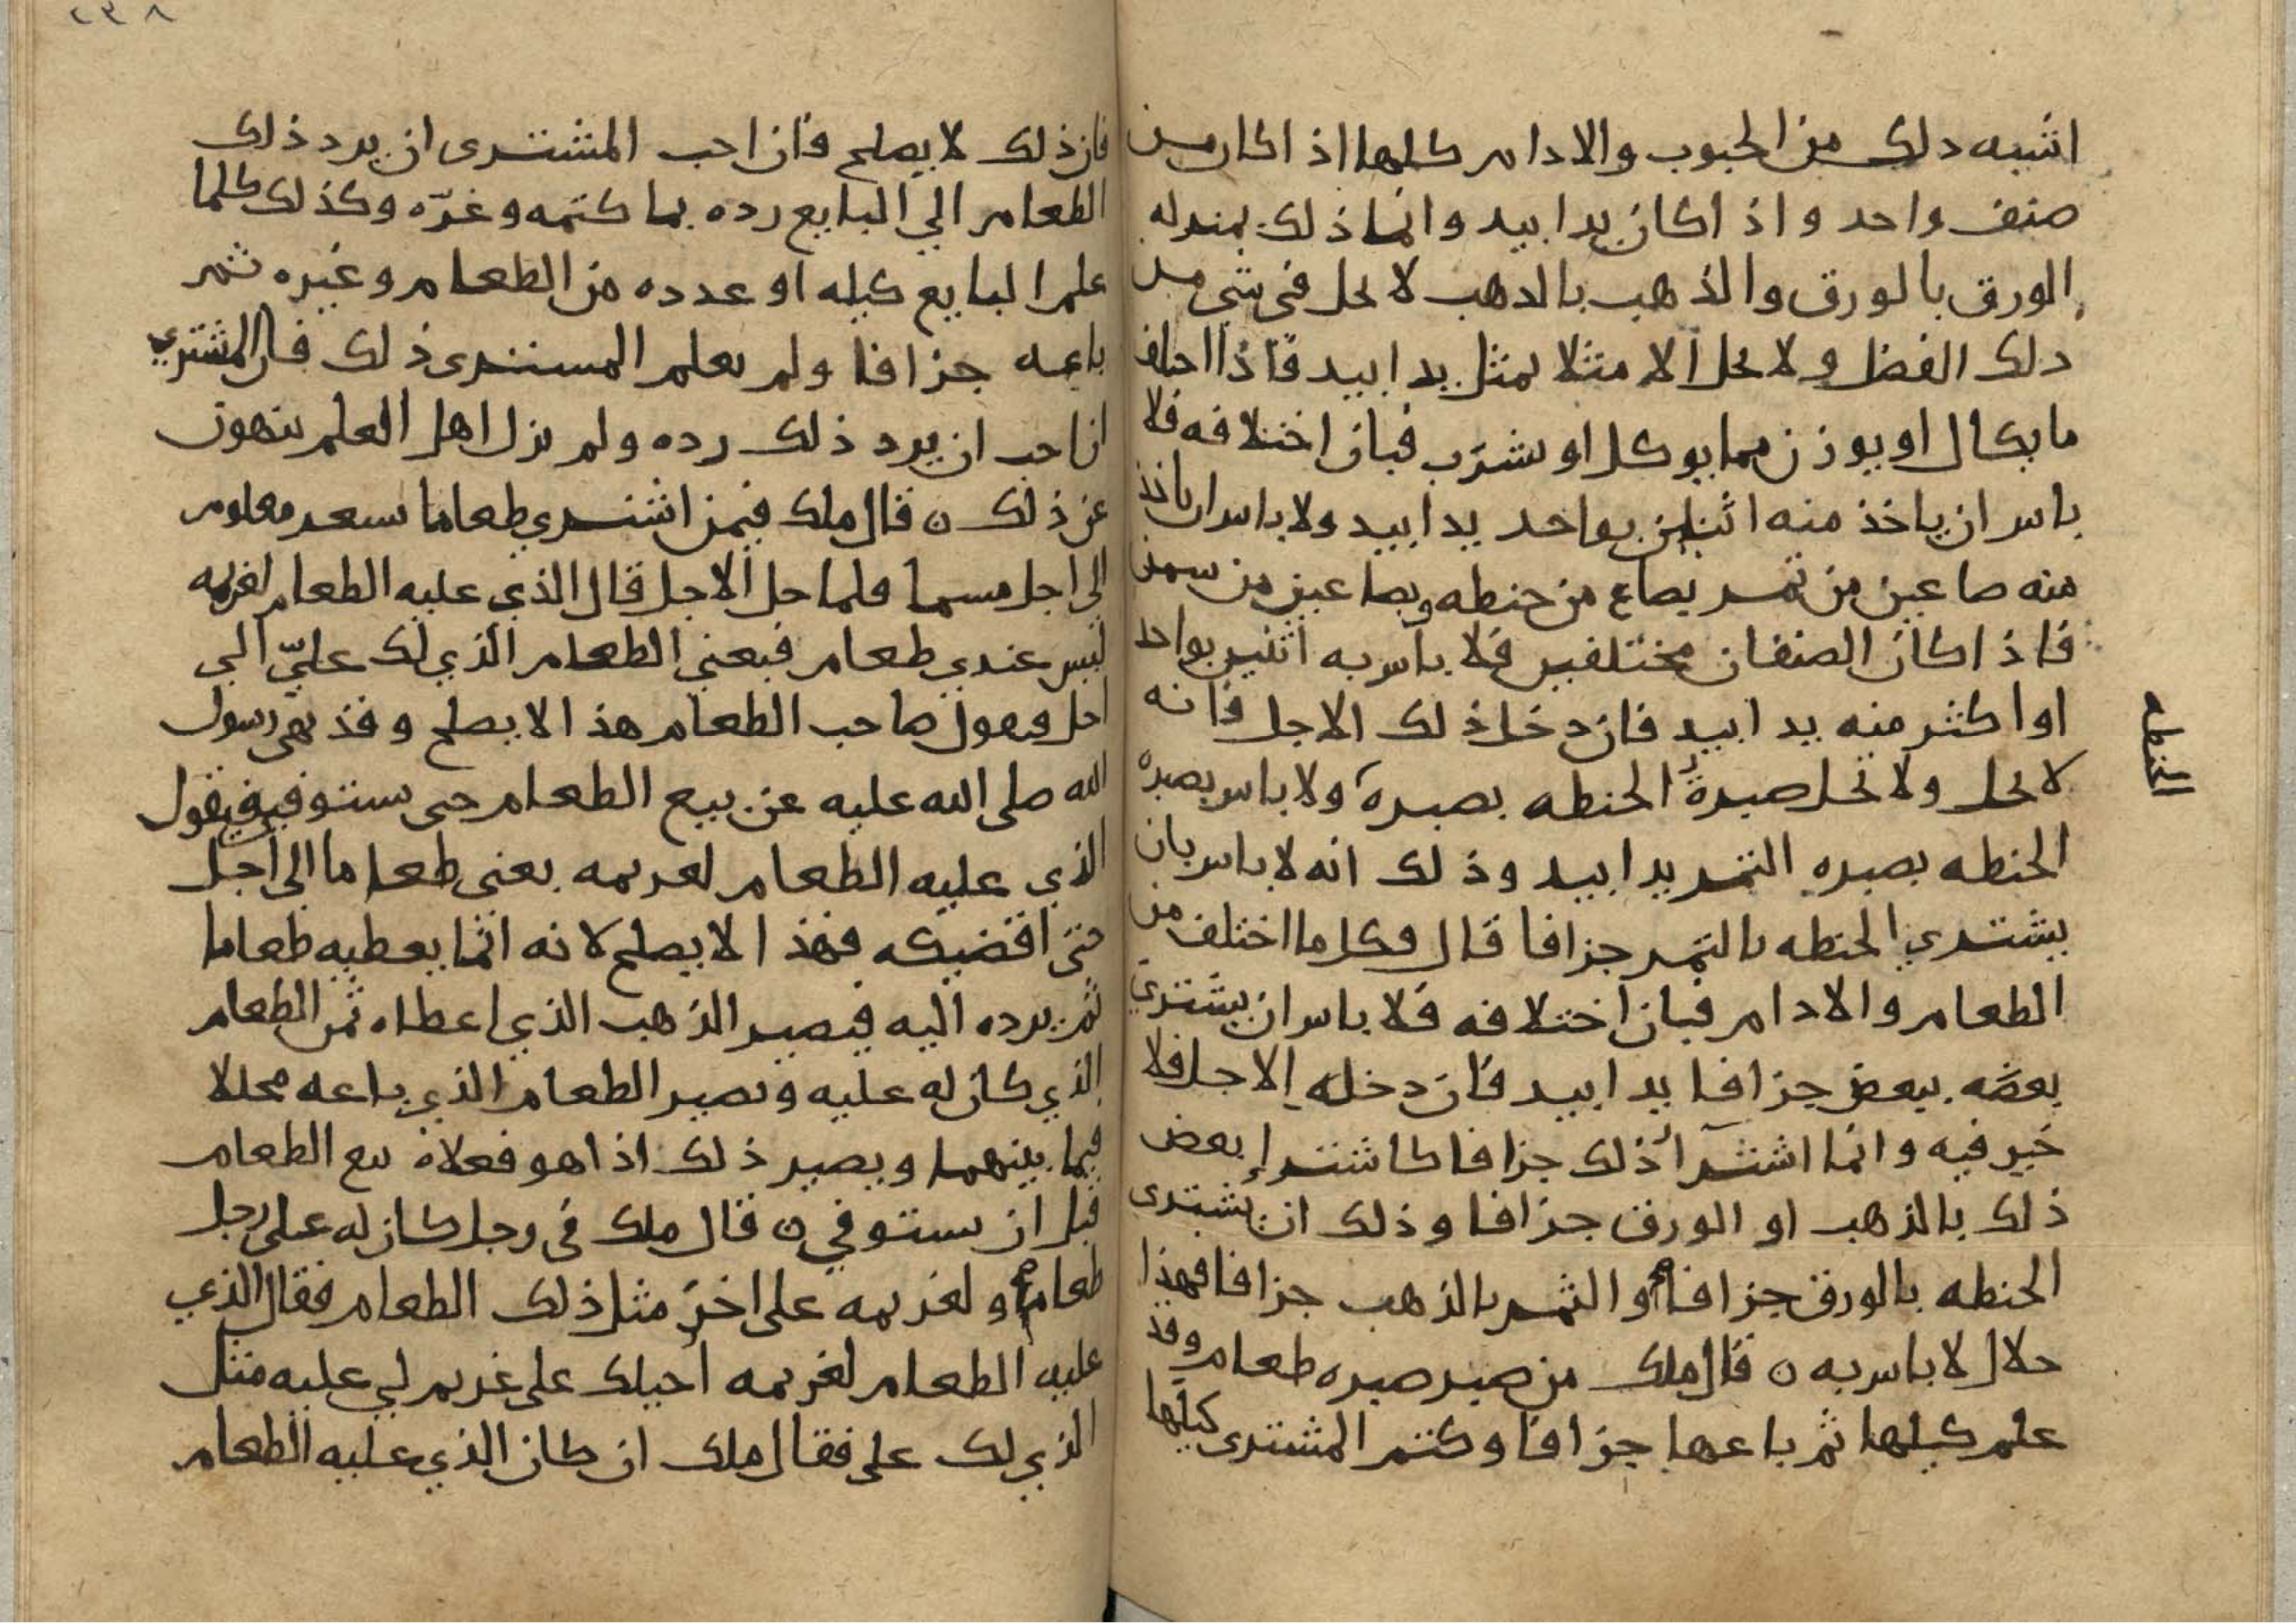 اشبه دلك من الحبوب والادام كلها اذا كان من
صنف واحد واذا كان يدا بيد وانما ذلك بمنزله
الورق بالورق والذهب بالدهب لا يحل في شي من
دلك الفضل ولا يحل الا مثلا بمثل يدا بيد فاذا اختلف
ما يكال او يوزن مما يوكل او يشرب فبان اختلافه فلا
باس ان ياخذ منه اثنين بواحد يدا بيد ولا باس ان ياخذ
منه صاعين من تمر بصاع من حنطه وبصاعين من سمن
فاذا كان الصنفان مختلفين فلا باس به اثنين بواحد
او اكثر منه يدا بيد فان دخل ذلك الاجل فانه
لا يحل ولا تحل صبرة الحنطه بصبرة ولا باس بصبره
الحنطه بصبره التمر يدا بيد وذلك انه لا باس بان
يشتري الحنطه بالتمر جزافا قال وكل ما اختلف من
الطعام والادام فبان اختلافه فلا باس ان يشتري
بعضه ببعض جزافا يدا بيد فان دخله الاجل فلا
خير فيه وانما اشترآ ذلك جزافا كاشترا بعض
ذلك بالذهب او الورق جزافا وذلك ان يشتري
الحنطه بالورق جزافا والتمر بالذهب جزافا فهذا
حلال لا باس به ه قال ملك من صبر صبره طعام وقد
علم كيلها ثم باعها جزافا وكتم المشتري كيلها
٢٣٨
فان ذلك لا يصلح فان احب المشترى ان يرد ذلك
الطعام الي البايع رده بما كتمه وغرّه وكذلك كلما
علم البايع كيله او عدده من الطعام وغيره ثم
باعه جزافا ولم يعلم المشترى ذلك فان المشتري
ان احب ان يرد ذلك رده ولم يزل اهل العلم ينهون
عن ذلك ه قال ملك فيمن اشتري طعاما بسعر معلوم
الى اجل مسما فلما حل الاجل قال الذي عليه الطعام لغريمه
ليس عندي طعام فبعني الطعام الذي لك عليّ الي
اجل فيقول صاحب الطعام هذا لا يصلح وقد نهى رسول
الله صلى الله عليه عن بيع الطعام حتى يستوفي فيقول
الذي عليه الطعام لغريمه بعني طعاما الى اجل
حتى اقضيكه فهذا لا يصلح لانه انما يعطيه طعاما
ثم يرده اليه فيصير الذهب الذي اعطاه ثمن الطعام
الذي كان له عليه ويصير الطعام الذي باعه محللا
فيما بينهما ويصير ذلك اذا هو فعلاه بيع الطعام
قبل ان يستوفي ه قال ملك في رجل كان له على رجل
طعام ولغريمه على اخر مثل ذلك الطعام فقال الذي
عليه الطعام لغريمه احيلك على غريم لي عليه مثل
الذي لك على فقال ملك ان كان الذي عليه الطعام